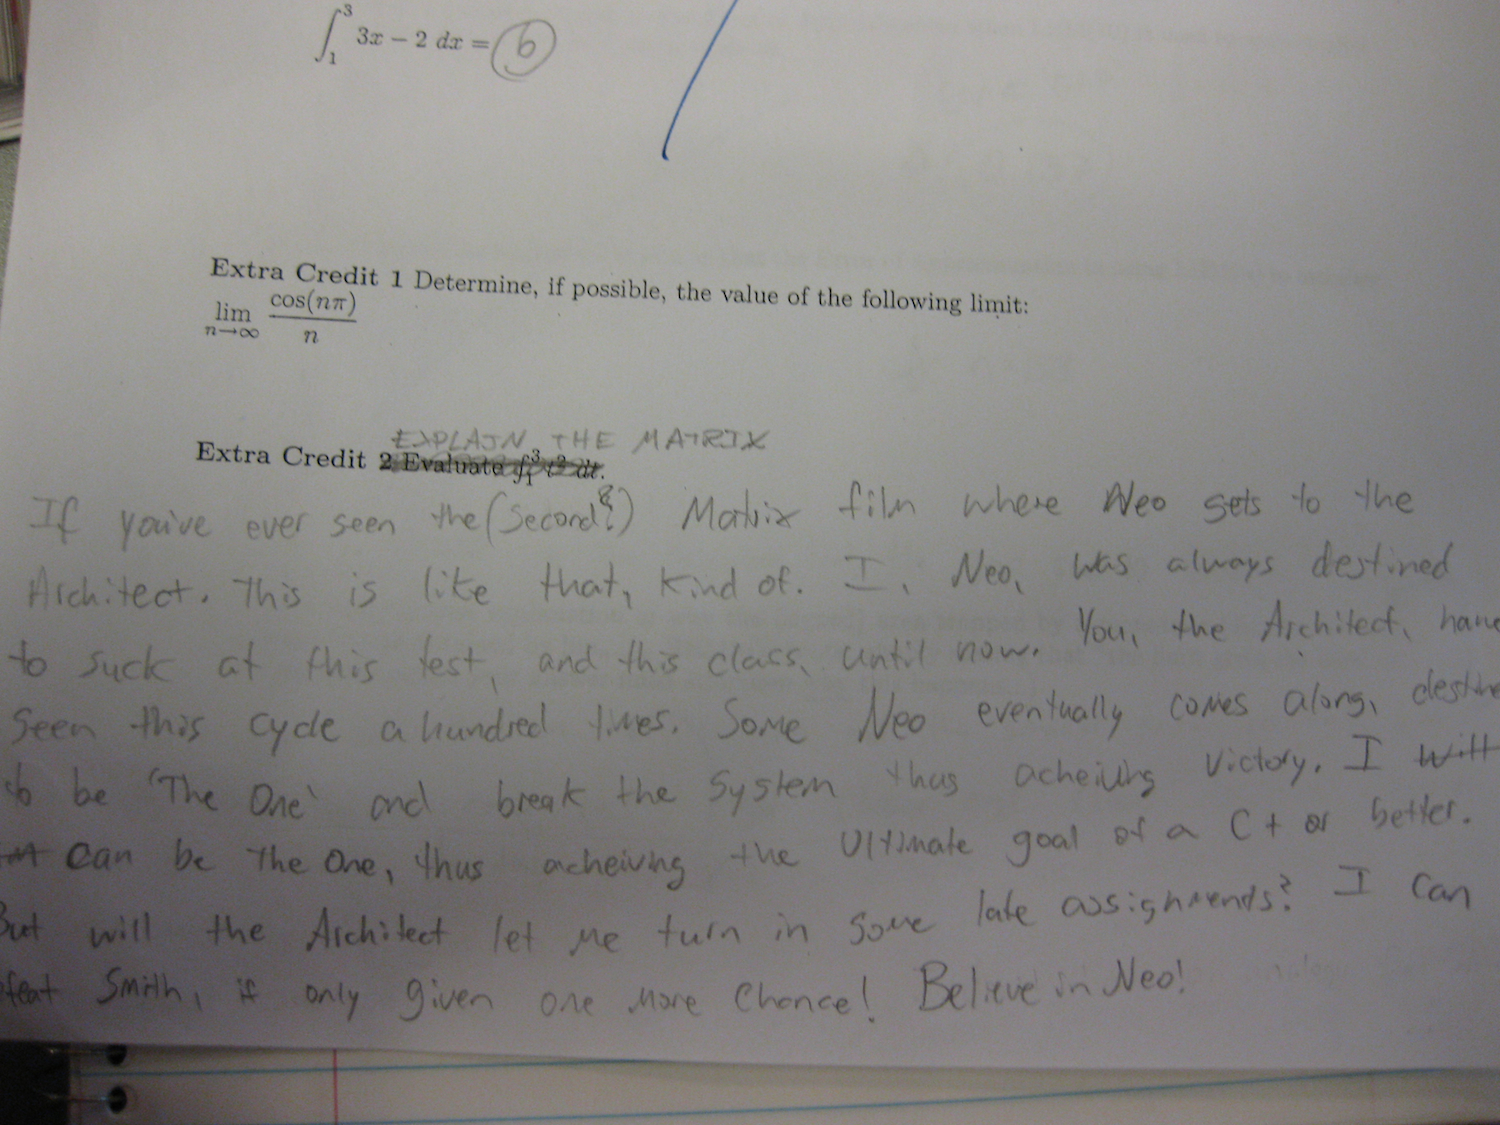 ∫₁³ 3x − 2 dx = 6
Extra Credit 1 Determine, if possible, the value of the following limit:
lim n→∞ cos(nπ) / n
EXPLAIN THE MATRIX
Extra Credit 2 Evaluate ∫₁³ t² dt.
If you've ever seen the (second?) Matrix film where Neo gets to the
Architect. This is like that, kind of. I, Neo, was always destined
to suck at this test, and this class, until now. You, the Architect, have
seen this cycle a hundred times. Some Neo eventually comes along, destine
to be 'The One' and break the system thus acheiving victory. I will
can be The One, thus acheiving the ultimate goal of a C+ or better.
But will the Architect let me turn in some late assignments? I can
feat Smith, if only given one more chance! Believe in Neo!